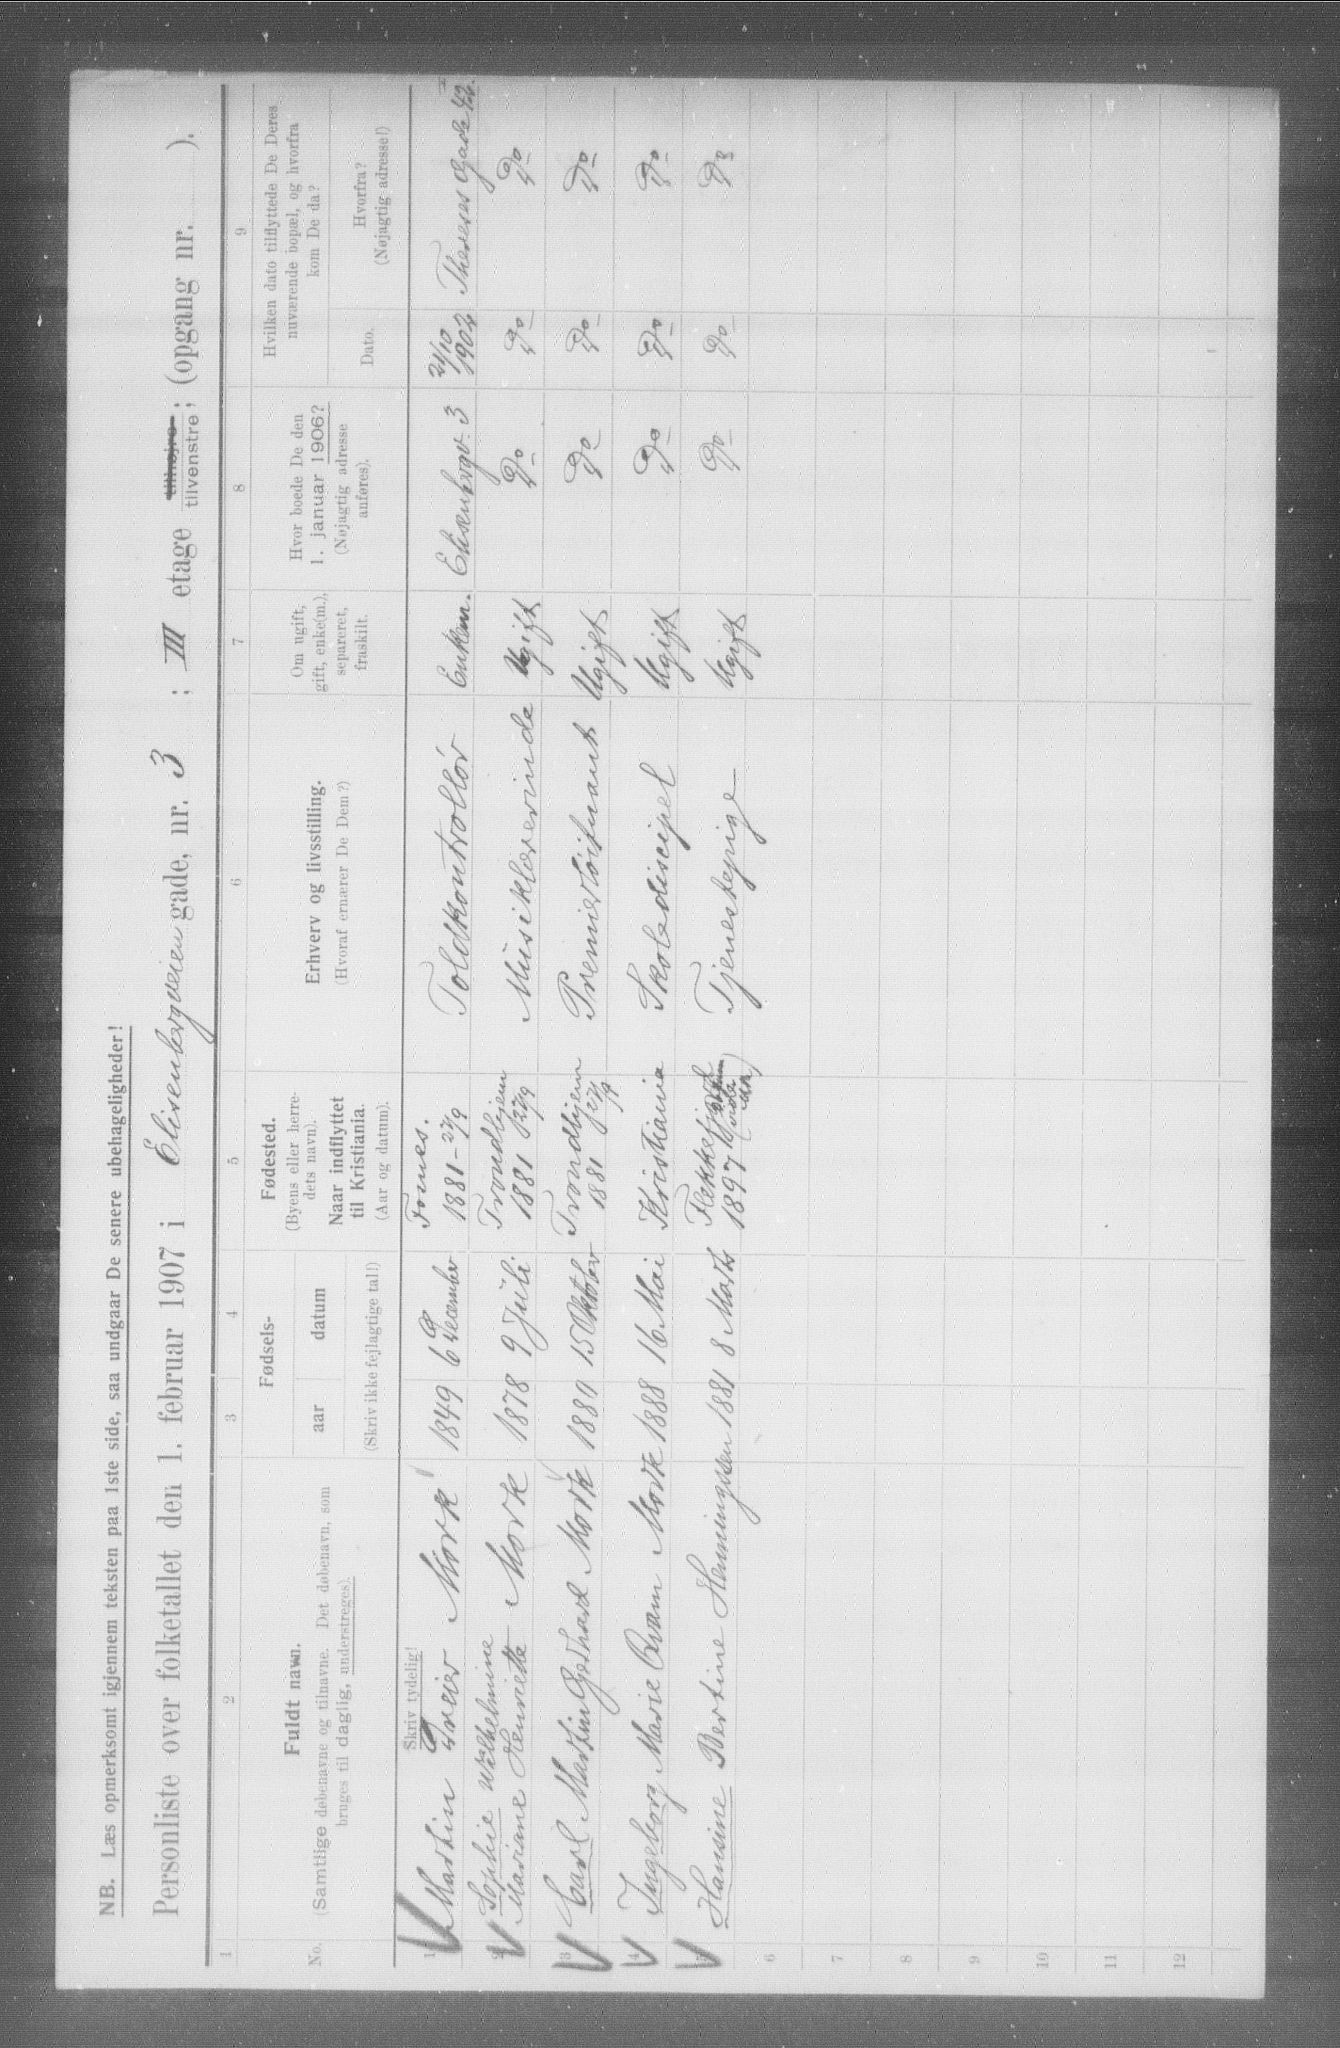 NB. Læs opmerksomt igjennem teksten paa 1ste side, saa undgaar De senere ubehageligheder!
Personliste over folketallet den 1. februar 1907 i Elisenbergveien gade, nr. 3 ; III etage tilhøjre tilvenstre; (opgang nr. ).
1 2 3 4 5 6 7 8 9
No.
Fuldt navn.
(Samtlige døbenavne og tilnavne. Det døbenavn, som
bruges til daglig, understreges).
Fødsels-
aar datum
(Skriv ikke fejlagtige tal!)
Fødested.
(Byens eller herre-
dets navn).
Naar indflyttet
til Kristiania.
(Aar og datum).
Erhverv og livsstilling.
(Hvoraf ernærer De Dem?)
Om ugift,
gift, enke(m.),
separeret,
fraskilt.
Hvor boede De den
1. januar 1906?
(Nøjagtig adresse
anføres).
Hvilken dato tilflyttede De Deres
nuværende bopæl, og hvorfra
kom De da?
Dato.
Hvorfra?
(Nøjagtig adresse!)
Skriv tydelig!
1 Martin Greier Mørk 1849 6 December Fosnes. 1881 - 27/9 Toldkontrollør Enkem. Elisenbergv. 3 24/10 1902 Thereses Gade 42
2 Sophie Wilhelmine
Mariane Henriette Mørk 1878 9 Juli Trondhjem 1881 27/9 Musiklærerinde Ugift Do Do Do
3 Carl Martin Gerhard Mørk 1880 15 Oktober Trondhjem 1881 27/9 Premierløitnant Ugift Do Do Do
4 Ingeborg Marie Mørk 1888 16 Mai Kristiania Skolediscipel Ugift Do Do Do
5 Hansine Bertine Henningsen 1881 8 Marts Flekkefjord 1897 Tjenestepige Ugift Do Do Do
6
7
8
9
10
11
12